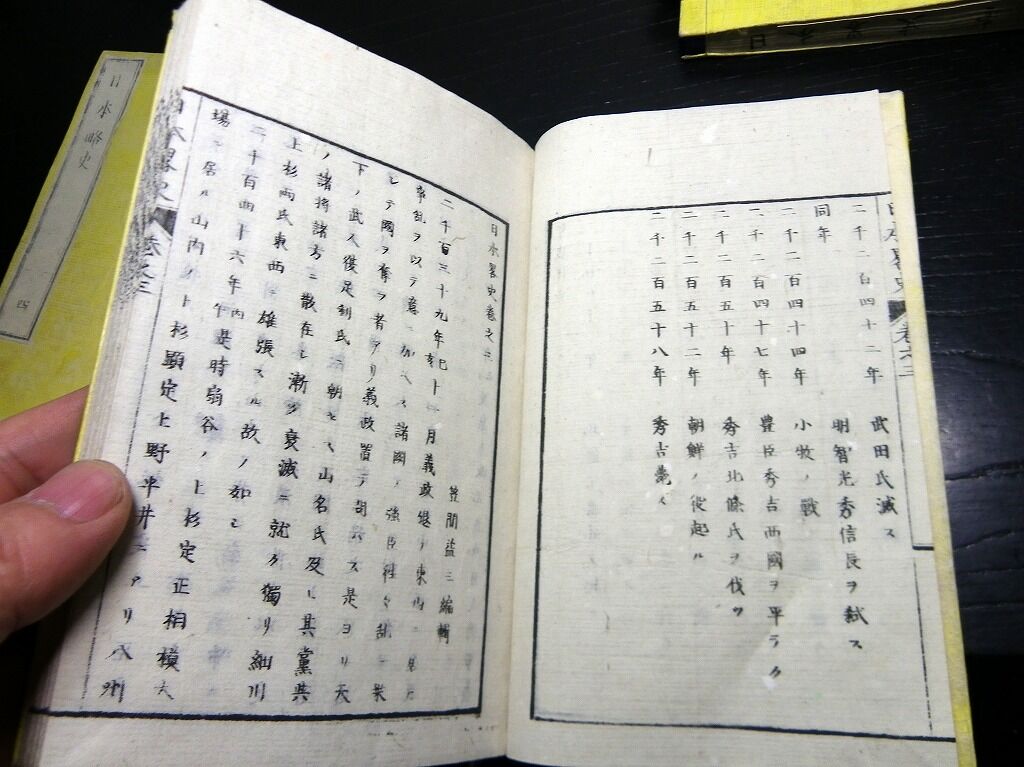 二千二百四十二年　武田氏滅ス
同年　明智光秀信長ヲ弑ス
二千二百四十四年　小牧ノ戰
二千二百四十七年　豊臣秀吉西國ヲ平ラク
二千二百五十年　秀吉北條氏ヲ伐ツ
二千二百五十二年　朝鮮ノ役起ル
二千二百五十八年　秀吉薨ス
日本畧史卷之三
日本畧史卷之三
笠間益三編輯
二千百三十九年己亥十一月義政退テ東山ニ
幸乱ヲ以テ意ニ加ヘス諸國ノ強臣往々乱ニ
シテ國ヲ奪フ者アリ義政置テ問ハス是ヨリ天
下ノ武人復足利氏ニ朝セス山名氏及ヒ其黨與
ノ諸將諸方ニ散在シ漸ク衰滅ニ就ク獨リ細川
上杉両氏東西ニ雄張スル故ノ如シ
二千百四十六年丙午是時扇谷ノ上杉定正相模大
場ニ居ル山内ノ上杉顯定上野平井ニアリ八州
日本畧史
卷之三
日本略史
四